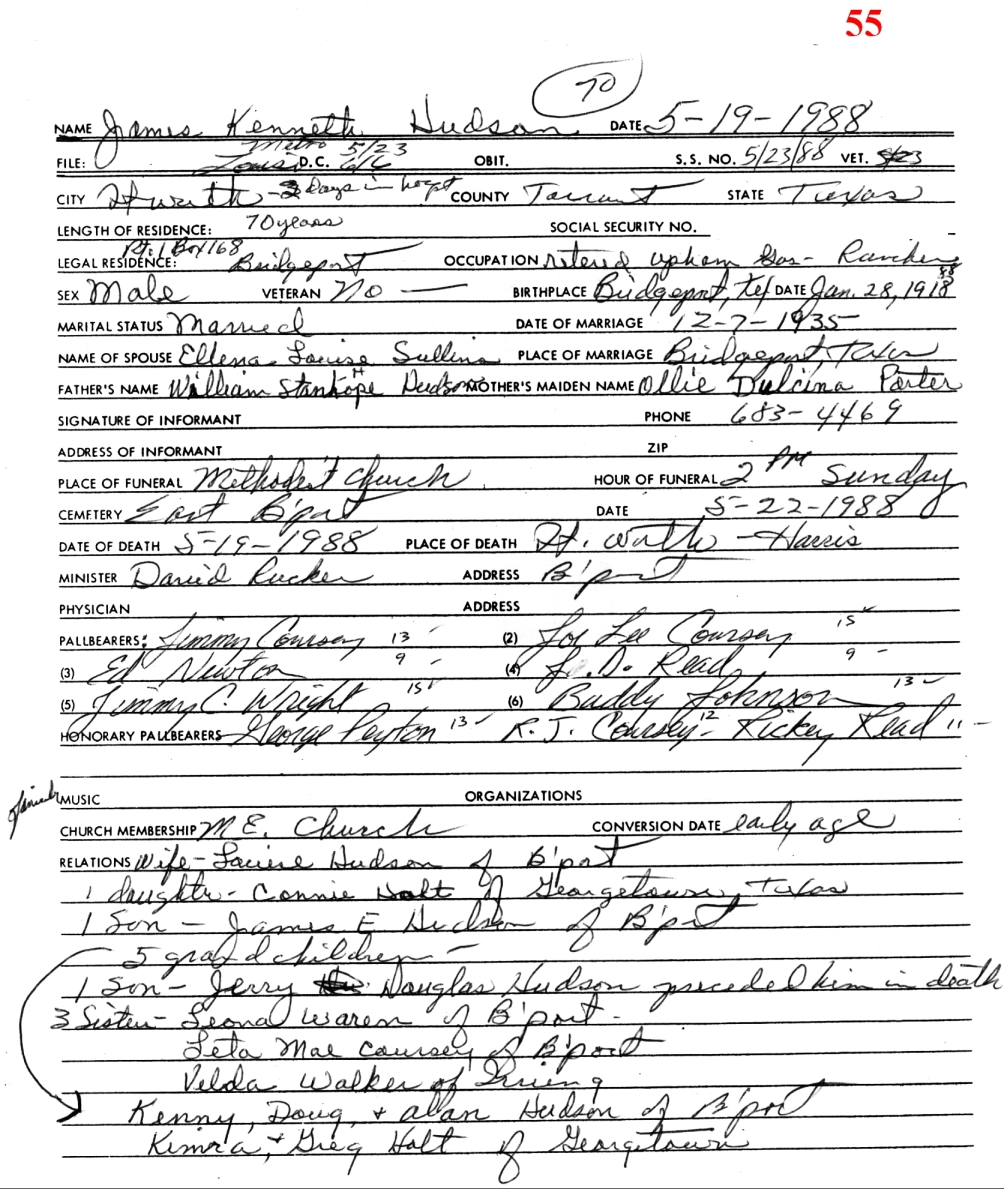 55
70
NAME James Kenneth Hudson DATE 5-19-1988
Metro 5/23
FILE: Louise D.C. 6/16 OBIT. S.S. NO. 5/23/88 VET. 5/23
CITY Ft worth - 2 days in hospt COUNTY Tarrant STATE Texas
LENGTH OF RESIDENCE: 70 years SOCIAL SECURITY NO.
Rt. 1 Box 168
LEGAL RESIDENCE: Bridgeport OCCUPATION retered upham Gas - Rancher
SEX Male VETERAN No BIRTHPLACE Bridgeport, Tex DATE Jan. 28, 1918
MARITAL STATUS Married DATE OF MARRIAGE 12-7-1935
NAME OF SPOUSE Ellena Louise Sullins PLACE OF MARRIAGE Bridgeport, Texas
FATHER'S NAME William Stanhope Hudson MOTHER'S MAIDEN NAME Ollie Dulcina Porter
SIGNATURE OF INFORMANT PHONE 683-4469
ADDRESS OF INFORMANT ZIP
PLACE OF FUNERAL Methodist Church HOUR OF FUNERAL 2 PM Sunday
CEMETERY East B'port DATE 5-22-1988
DATE OF DEATH 5-19-1988 PLACE OF DEATH Ft. worth - Harris
MINISTER David Rucker ADDRESS B'port
PHYSICIAN ADDRESS
PALLBEARERS: Jimmy Coursey 13 (2) Joe Lee Coursey 15
(3) Ed Newton 9 (4) J. D. Read 9
(5) Jimmy C. Wright 15 (6) Buddy Johnson 13
HONORARY PALLBEARERS George Peyton 13 R. J. Coursey 12 - Rickey Read 11
MUSIC ORGANIZATIONS
CHURCH MEMBERSHIP M E. Church CONVERSION DATE early age
RELATIONS Wife - Louise Hudson of B'port
1 daughter - Connie Holt of Georgetown, Texas
1 Son - James E Hudson of B'port
5 grandchildren
1 Son - Jerry Douglas Hudson preceded him in death
3 Sister - Leona Waren of B'port -
Leta Mae Coursey of B'port
Velda Walker of Irving
Kenny, Doug, + alan Hudson of B'port
Kimra, + Greg Holt of Georgetown